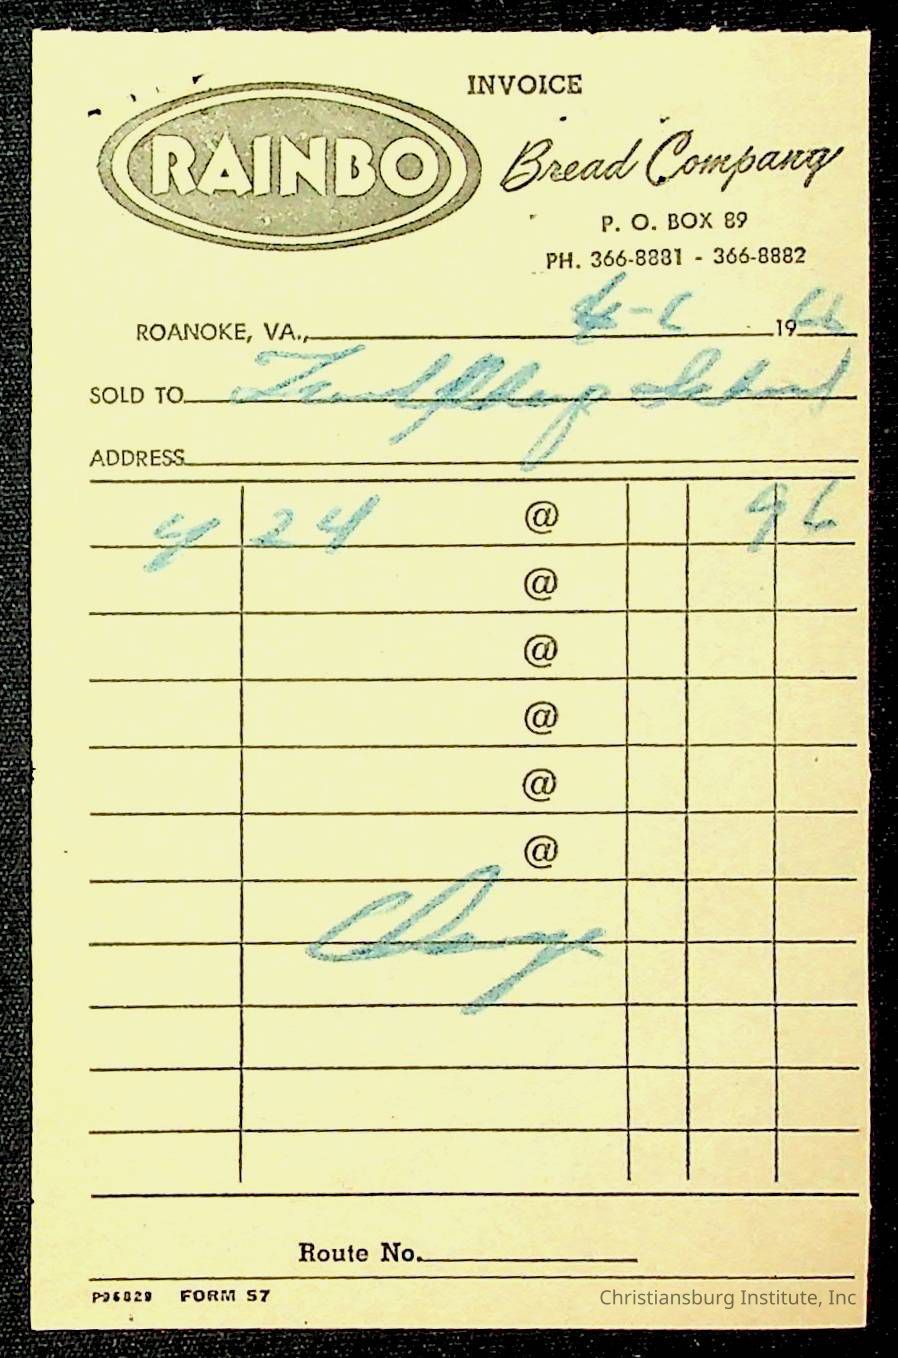 INVOICE
RAINBO
Bread Company
P. O. BOX 89
PH. 366-8881 - 366-8882
ROANOKE, VA., 4-6 1966
SOLD TO School
ADDRESS
4 24 @ 96
@
@
@
@
@
Charge
Route No.
P96029 FORM 57
Christiansburg Institute, Inc